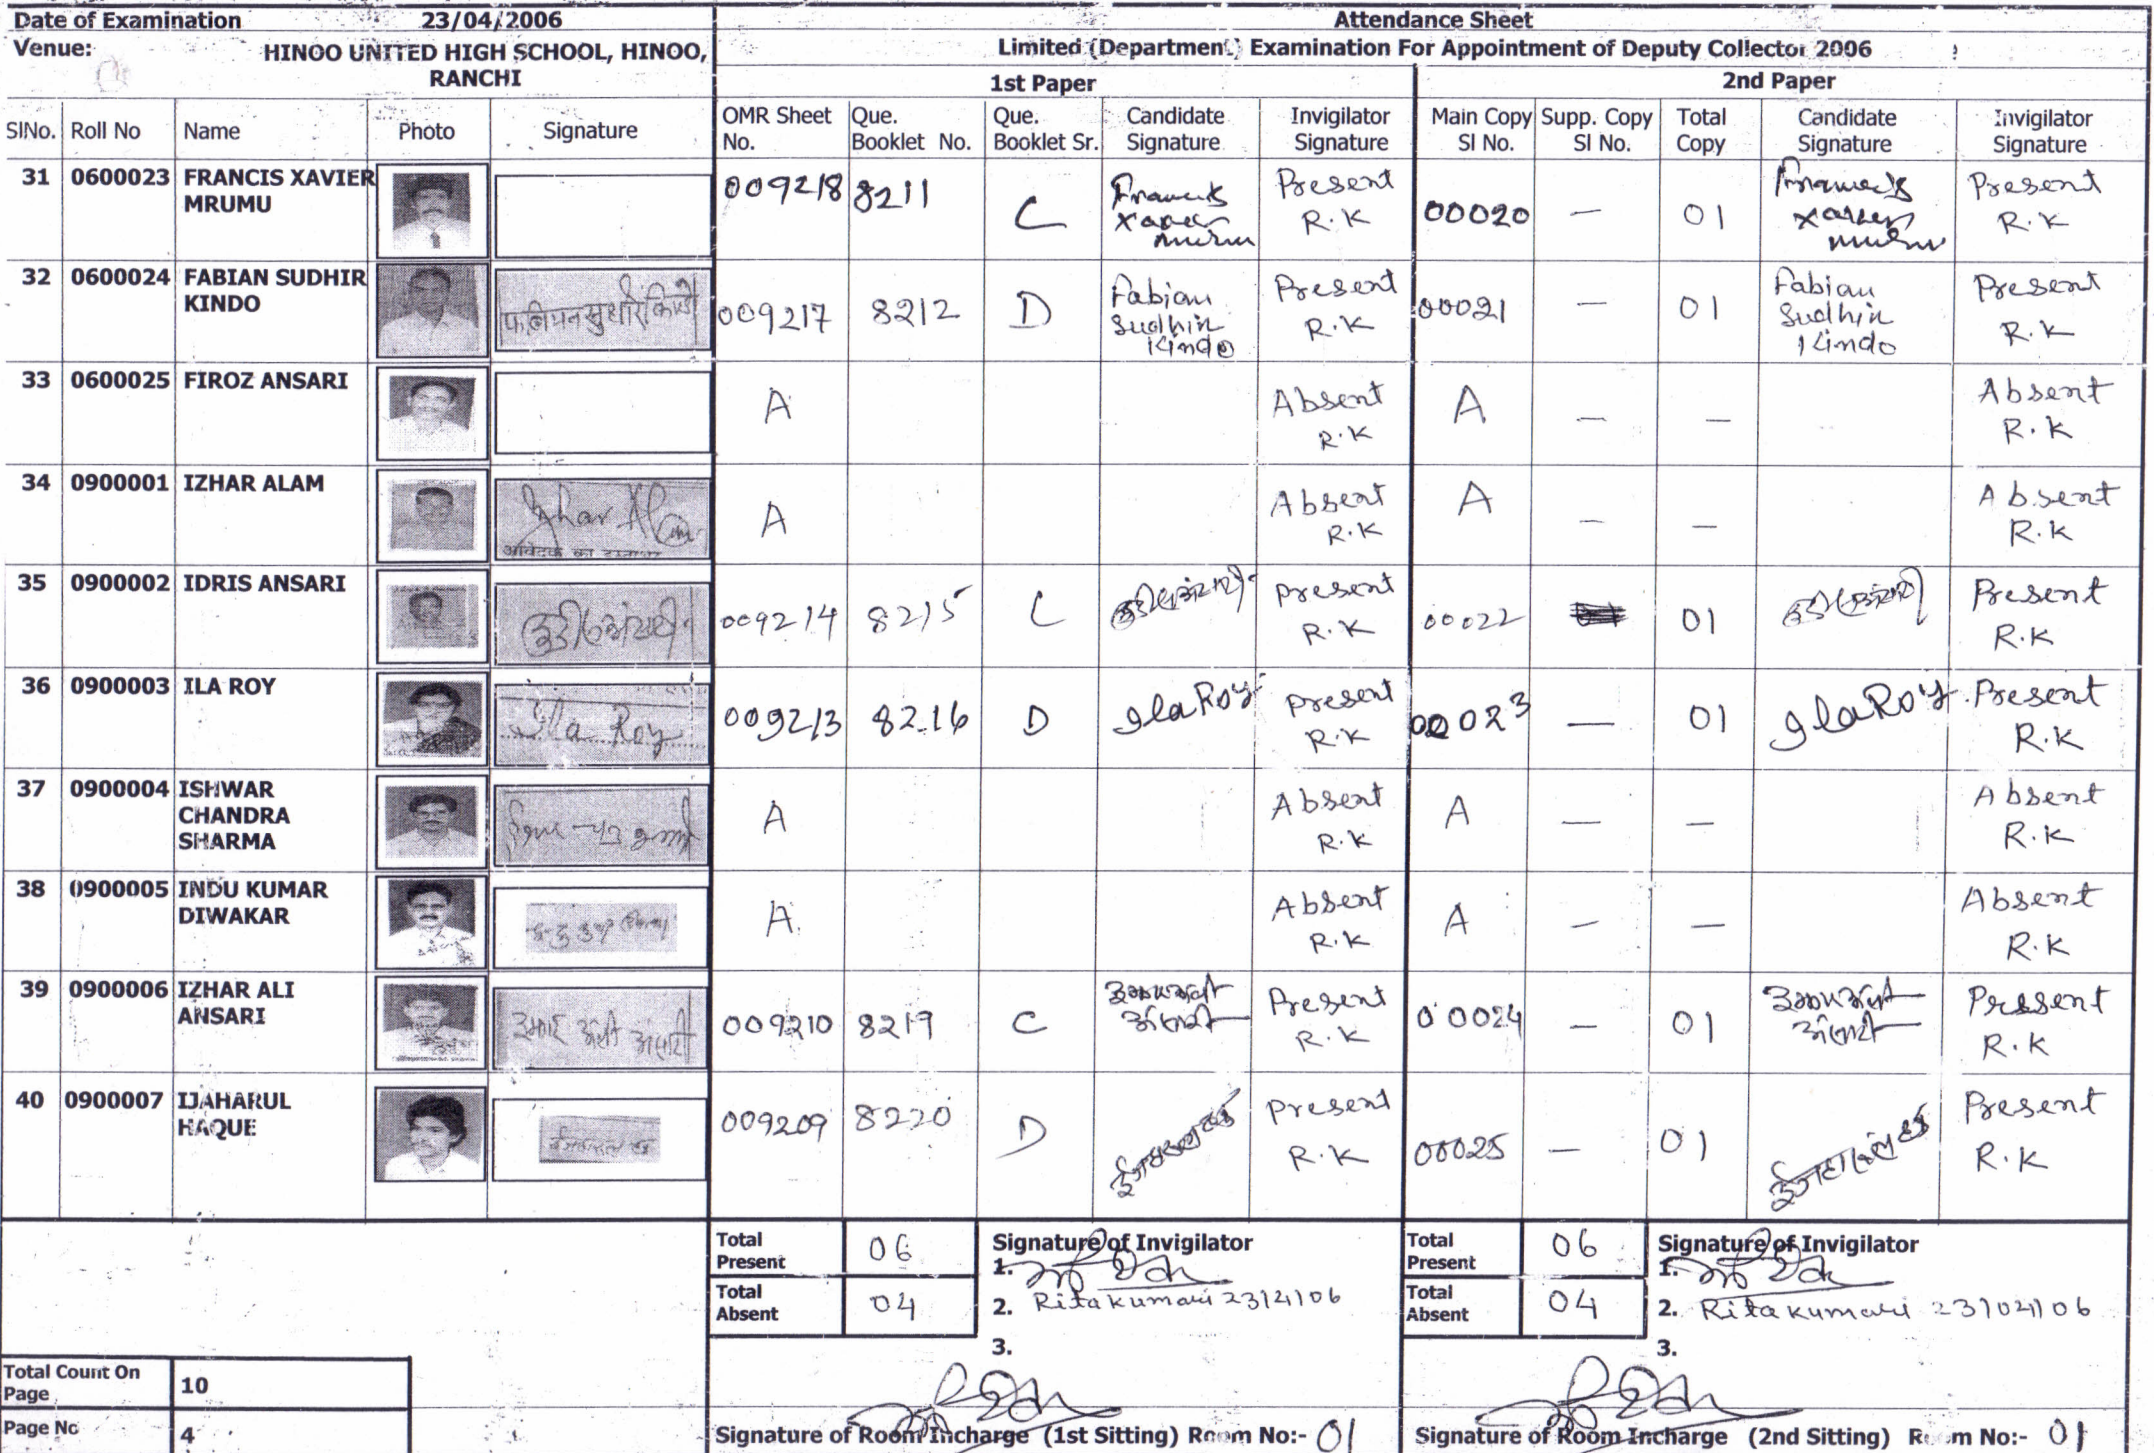 Date of Examination 23/04/2006 Attendance Sheet
Venue: HINOO UNITED HIGH SCHOOL, HINOO, RANCHI
Limited (Department) Examination For Appointment of Deputy Collector 2006
1st Paper 2nd Paper
SlNo. Roll No Name Photo Signature OMR Sheet No. Que. Booklet No. Que. Booklet Sr. Candidate Signature Invigilator Signature Main Copy Sl No. Supp. Copy Sl No. Total Copy Candidate Signature Invigilator Signature
31 0600023 FRANCIS XAVIER MRUMU 009218 8211 C Francis Xavier Murmu Present R.K 00020 — 01 Francis Xavier Murmu Present R.K
32 0600024 FABIAN SUDHIR KINDO फबियन सुधीर किण्डो 009217 8212 D Fabian Sudhir Kindo Present R.K 00021 — 01 Fabian Sudhir Kindo Present R.K
33 0600025 FIROZ ANSARI A Absent R.K A — — Absent R.K
34 0900001 IZHAR ALAM Izhar Alam आवेदक का हस्ताक्षर A Absent R.K A — — Absent R.K
35 0900002 IDRIS ANSARI 009214 8215 C Present R.K 00022 01 Present R.K
36 0900003 ILA ROY Ila Roy 009213 8216 D Ila Roy Present R.K 00023 — 01 Ila Roy Present R.K
37 0900004 ISHWAR CHANDRA SHARMA A Absent R.K A — — Absent R.K
38 0900005 INDU KUMAR DIWAKAR A Absent R.K A — — Absent R.K
39 0900006 IZHAR ALI ANSARI 009210 8219 C Present R.K 00024 — 01 Present R.K
40 0900007 IJAHARUL HAQUE 009209 8220 D Present R.K 00025 — 01 Present R.K
Total Present 06 Signature of Invigilator Total Present 06 Signature of Invigilator
1. 1.
Total Absent 04 2. Rita Kumari 23/4/06 Total Absent 04 2. Rita Kumari 23/04/06
3. 3.
Total Count On Page 10
Page No 4 Signature of Room Incharge (1st Sitting) Room No:- 01 Signature of Room Incharge (2nd Sitting) Room No:- 01